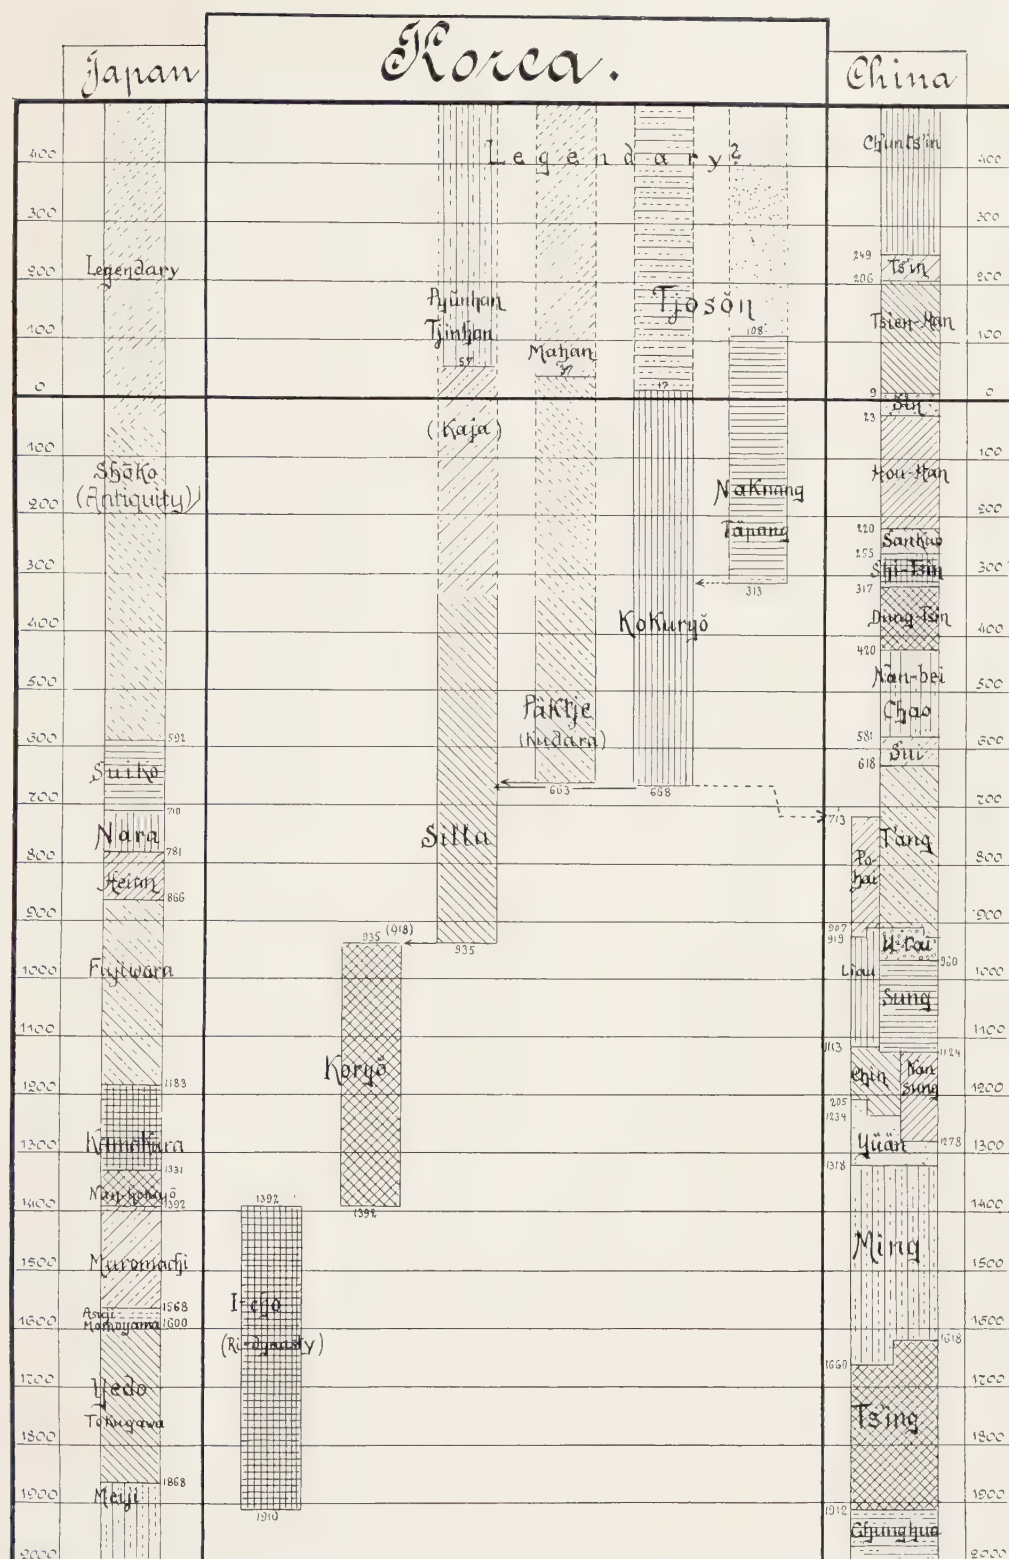 Japan
Korea.
China
400
300
200
100
0
100
200
300
400
500
600
700
800
900
1000
1100
1200
1300
1400
1500
1600
1700
1800
1900
2000
Legendary
Shōko
(Antiquity)
592
Suiko
710
Nara
781
Heian
866
Fujiwara
1183
Kamakura
1331
1392
Muromachi
1568
Momoyama
1600
Yedo
Tokugawa
1868
Meiji
Legendary?
Pyŭnhan
Tjinhan
57
(Kaja)
Silla
935
Mahan
37
Päktje
(Kudara)
663
Tjosŏn
17
Kokuryŏ
668
108
Naknang
Täpang
313
935 (918)
Koryŏ
1392
1392
I-cho
(Ri-dynasty)
1910
Chunts'in
249
Ts'in
206
Tsien-Han
9
Sin
23
Hou-Han
220
Sankuo
255
Shi-Tsin
317
Dung-Tsin
420
Nan-bei
Chao
581
Sui
618
T'ang
713
Po-
hai
907
919
U-Dai
960
Liau
Sung
1113
1124
Chin
Nan
Sung
205
1234
1278
Yüän
1318
Ming
1618
1660
Ts'ing
1912
Chunghua
400
300
200
100
0
100
200
300
400
500
600
700
800
900
1000
1100
1200
1300
1400
1500
1600
1700
1800
1900
2000